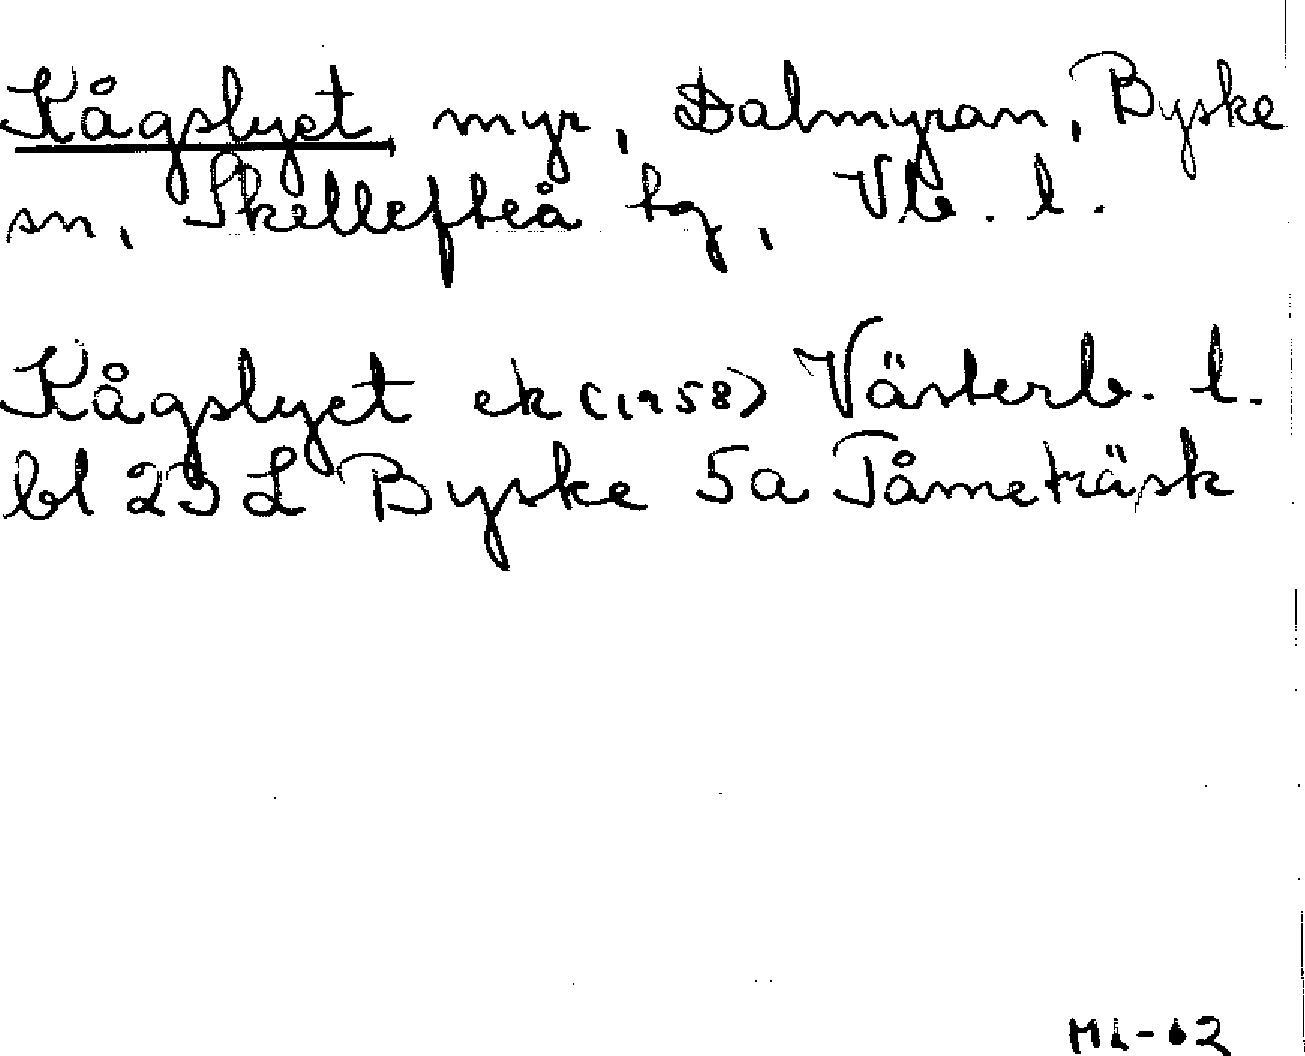 Kågslyet myr, Dalmyran, Byske
sn, Skellefteå tg, Vb. l.
Kågslyet ek (1958) Västerb. l.
bl 23 L Byske 5a Tåmeträsk